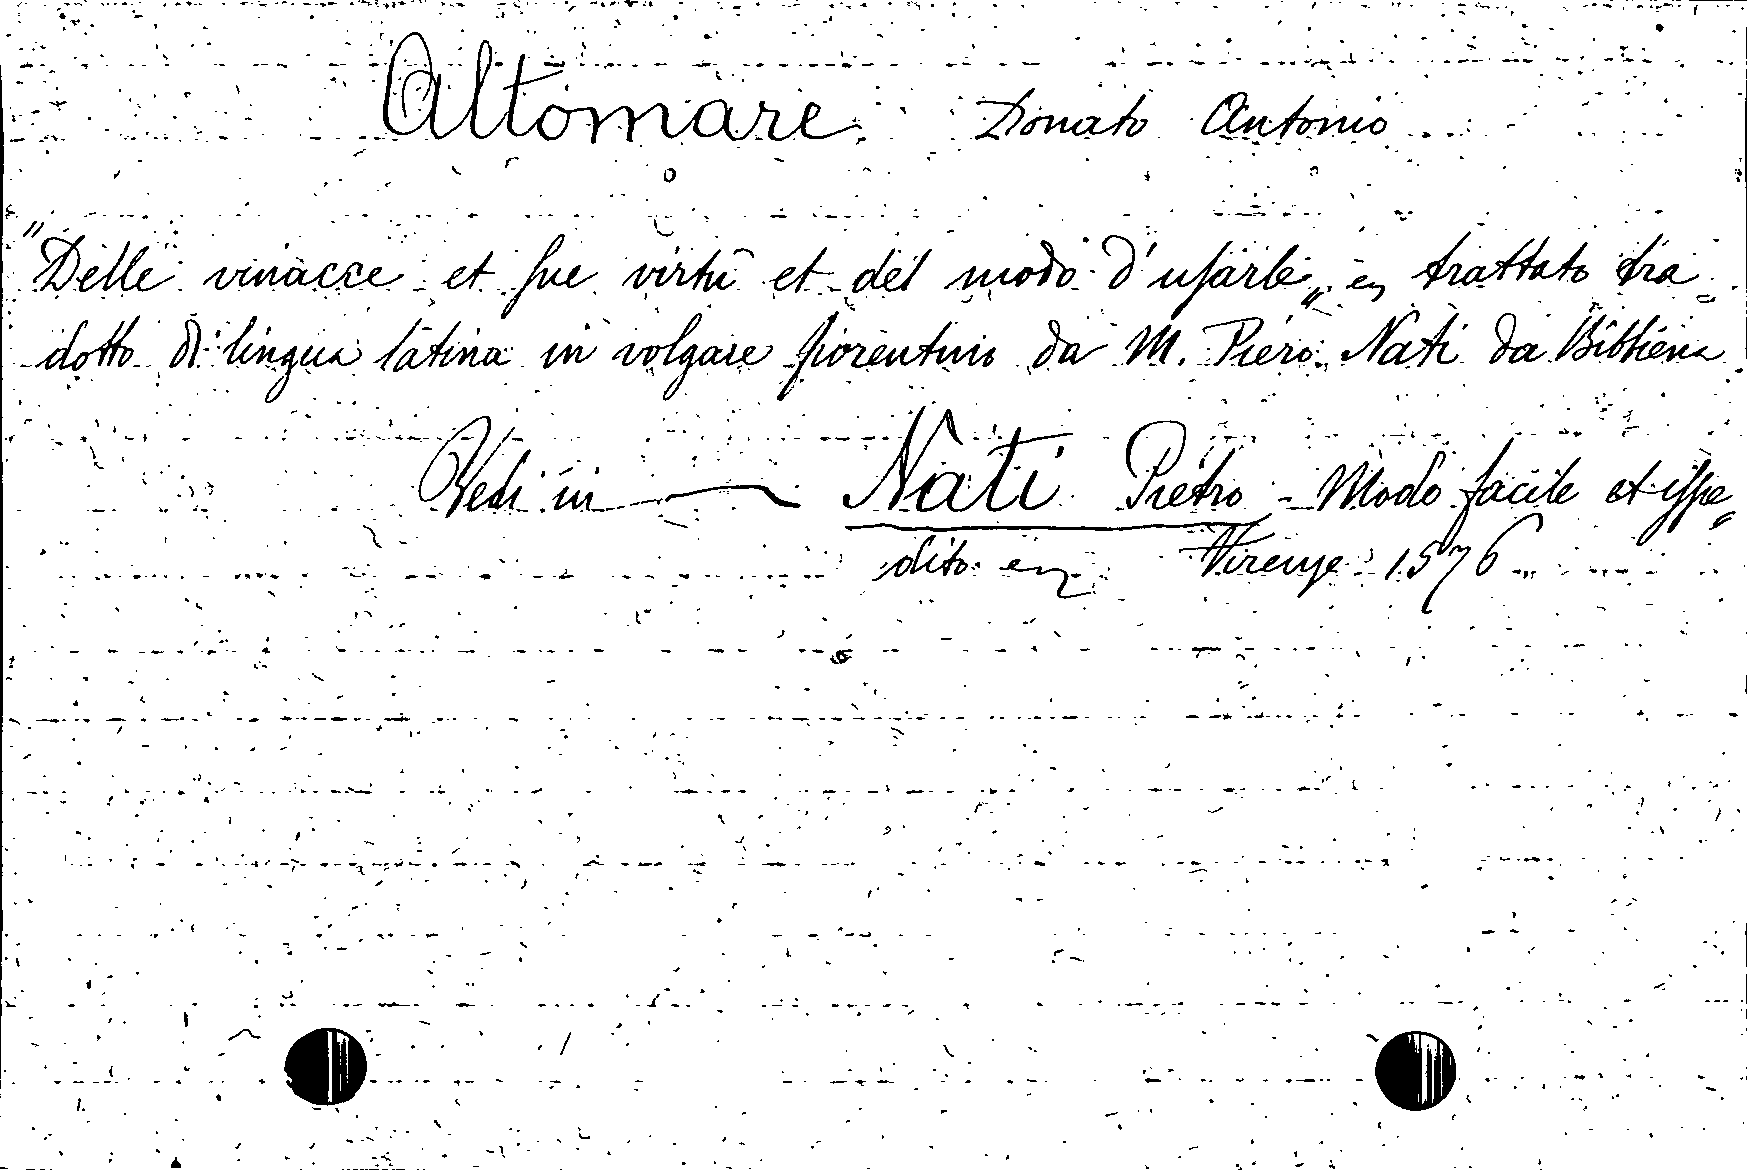 Altomare Donato Antonio
"Delle vinacce et sue virtù et del modo d'usarle„ è trattato tra„
dotto di lingua latina in volgare fiorentino da M. Piero Nati da Bibbiena
Vedi in — Nati Pietro - Modo facile et ispe„
dito Firenze 1576